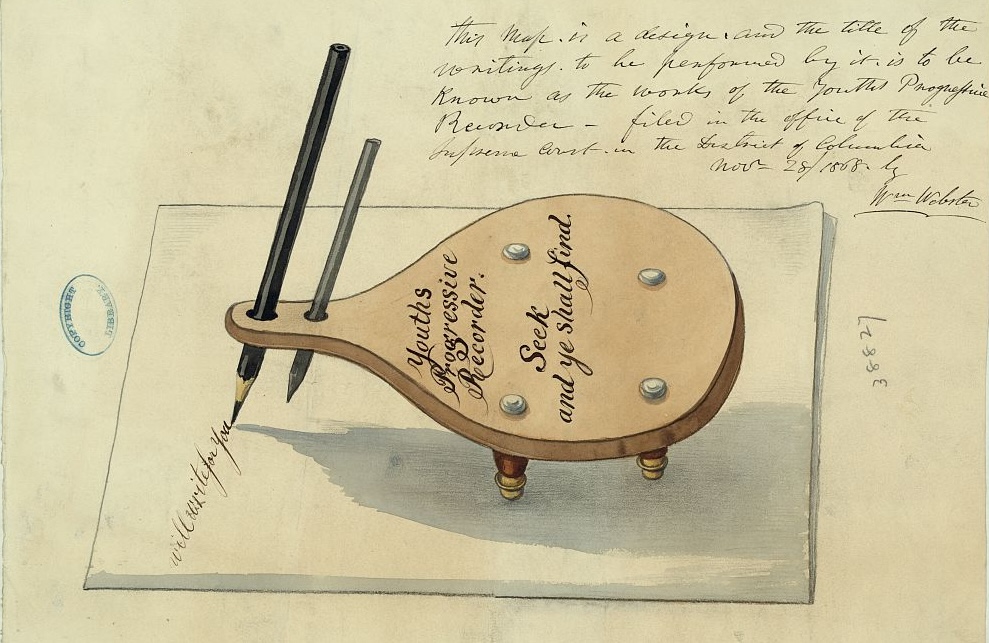 This Map is a design and the title of the
writings to be performed by it is to be
Known as the works of the Youths Progressive
Recorder - filed in the office of the
Supreme Court in the District of Columbia
Novr 28/1868 by
Wm Webster
Youths
Progressive
Recorder.
Seek
and ye shall find.
will write for you
COPYRIGHT
LIBRARY